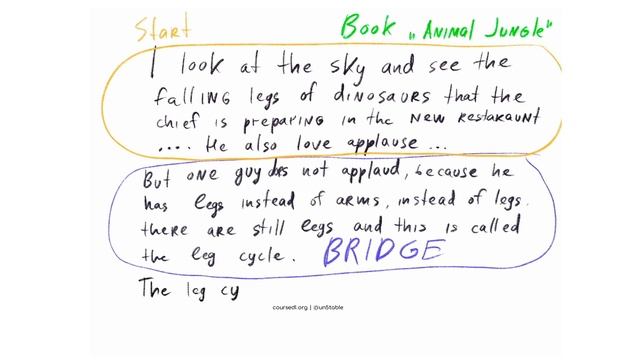 Start
Book „Animal Jungle"
I look at the sky and see the
falling legs of dinosaurs that the
chief is preparing in the new restaraunt
.... He also love applause ...
But one guy does not applaud, because he
has legs instead of arms, instead of legs.
there are still legs and this is called
the leg cycle. BRIDGE
The leg cy
coursedl.org | @un5table